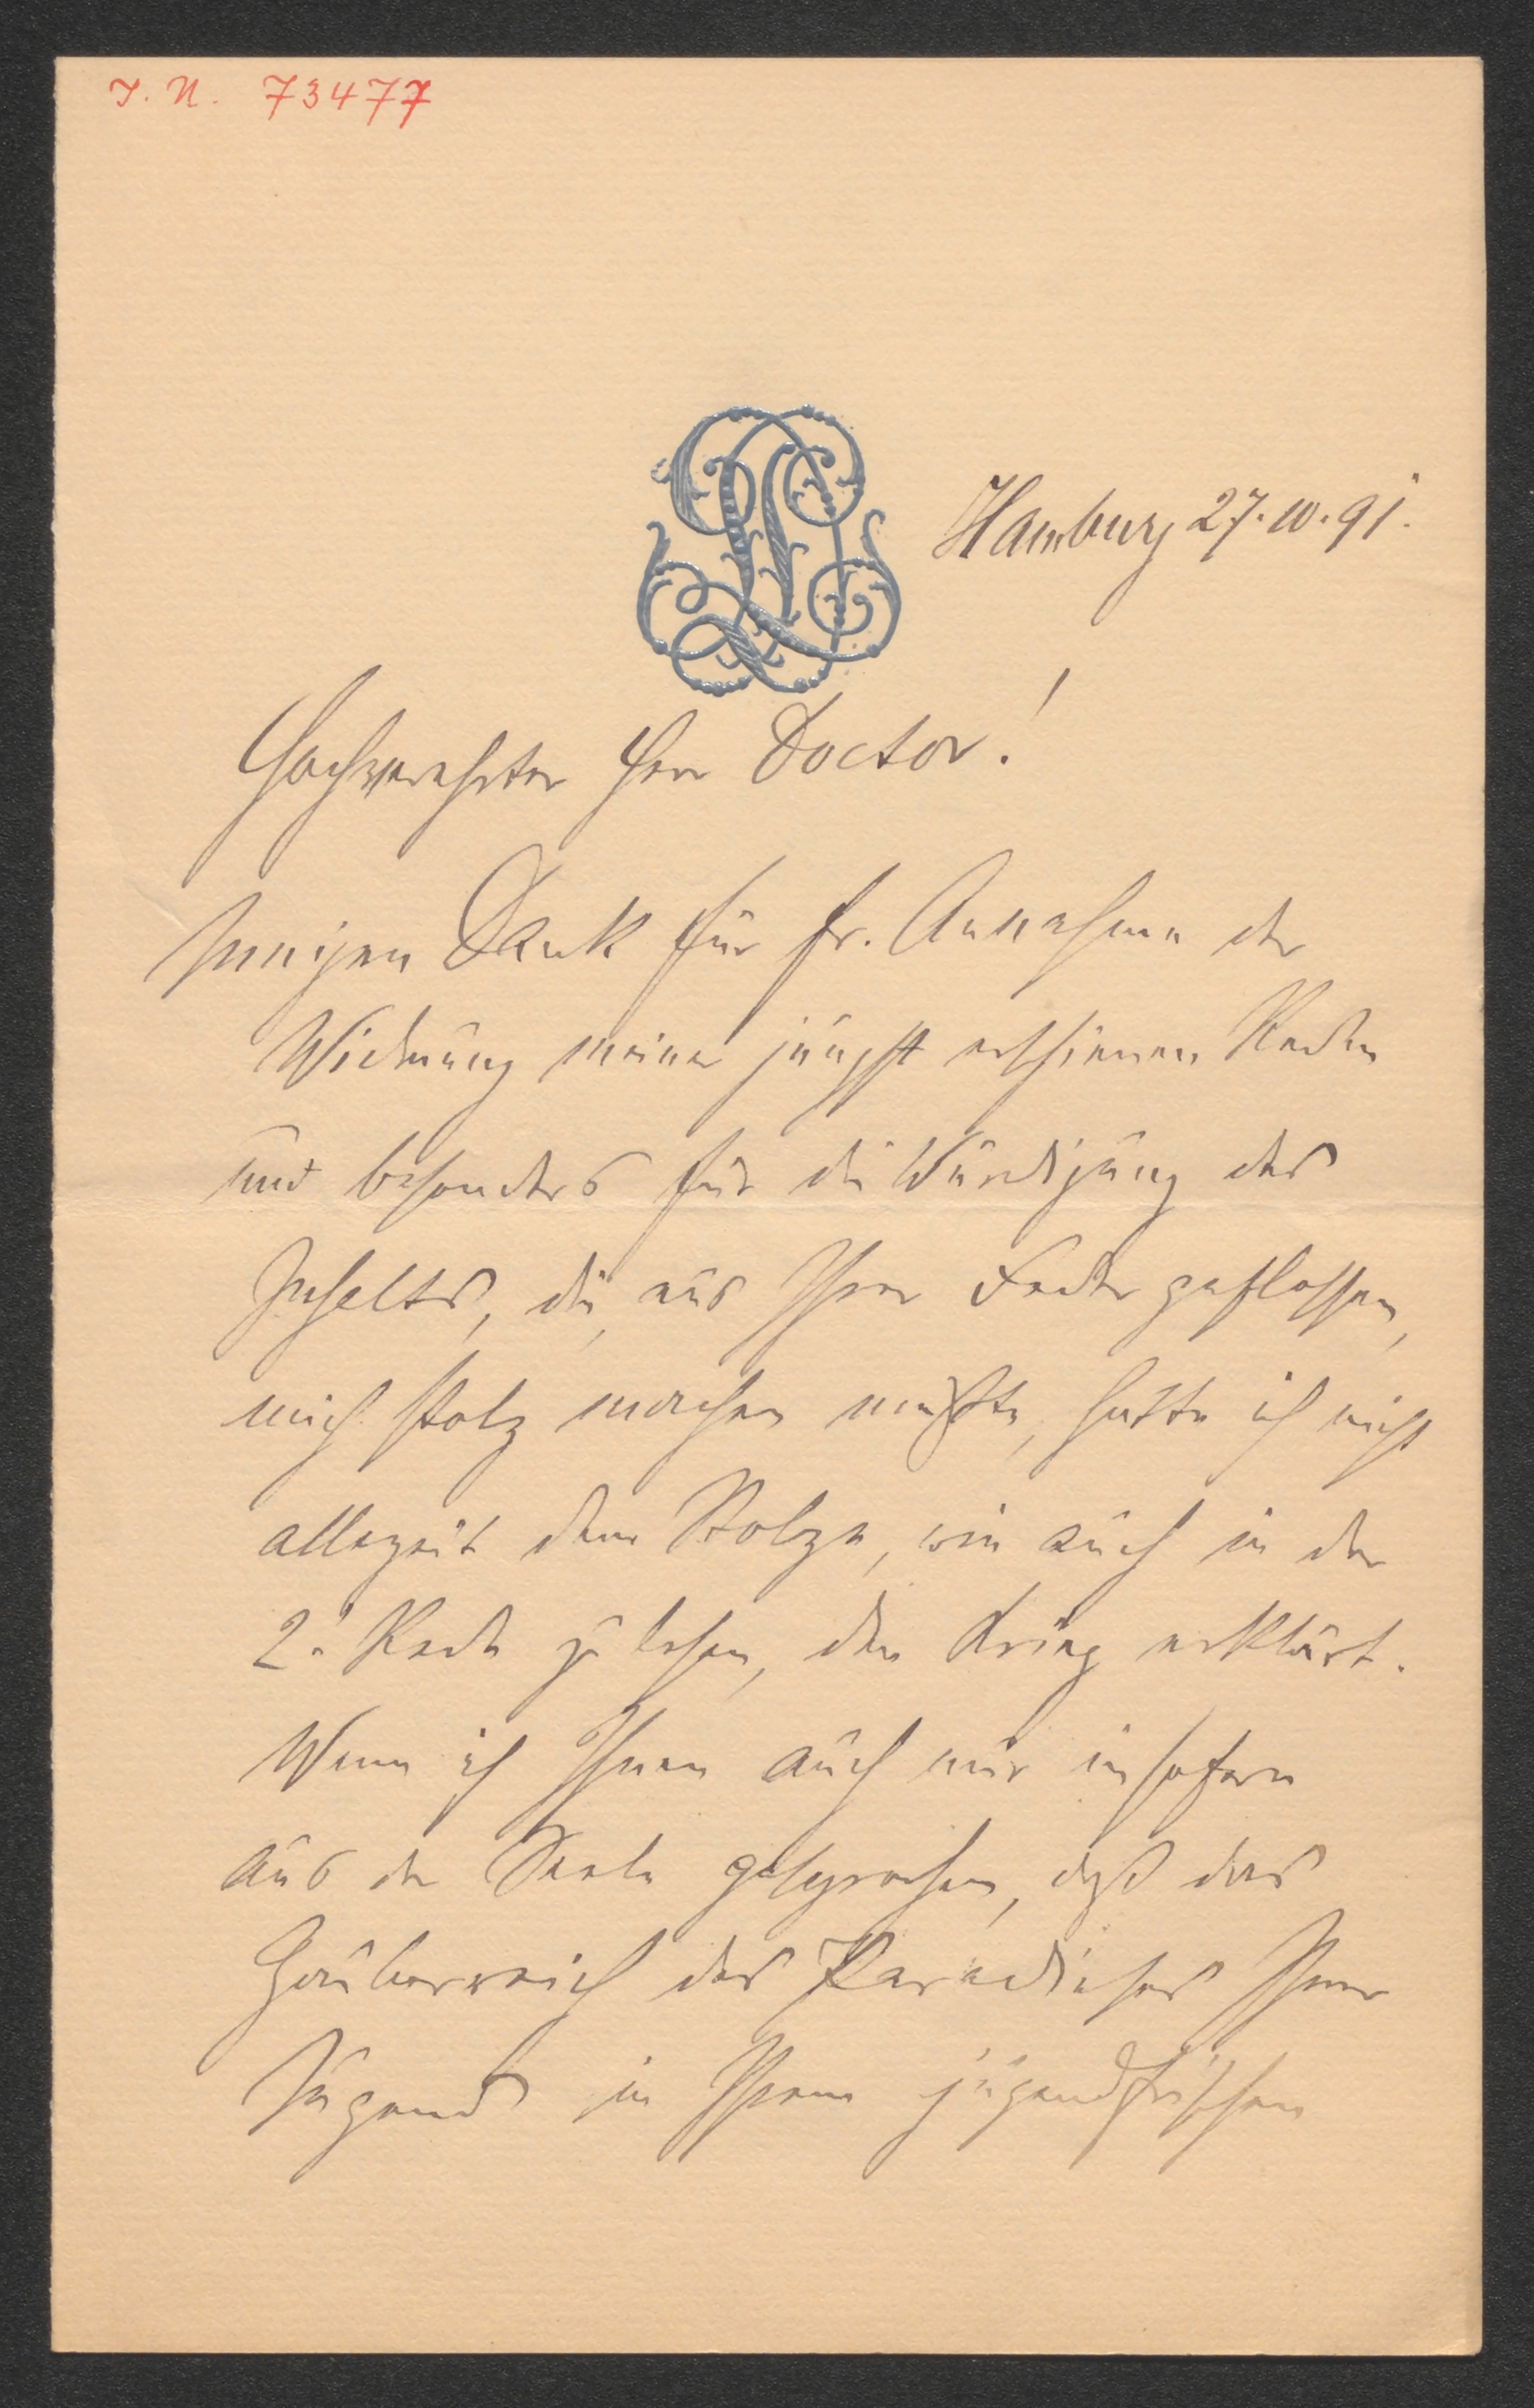 I. N. 73477
Hamburg 27.10.91.
Hochverehrter Herr Doctor!
Innigen Dank für fr. Annahme der
Widmung meiner jüngst erschienen Reden
und besonders für die Würdigung des
Inhalts, die, aus Ihrer Feder geflossen,
mich stolz machen müßte, hätte ich nicht
allezeit dem Stolze, wie auch in der
2. Rede zu lesen, den Krieg erklärt.
Wenn ich Ihnen auch nur insofern
aus der Seele gesprochen, daß das
Zauberreich des Paradieses Ihrer
Jugend in Ihrem jugendfrischen